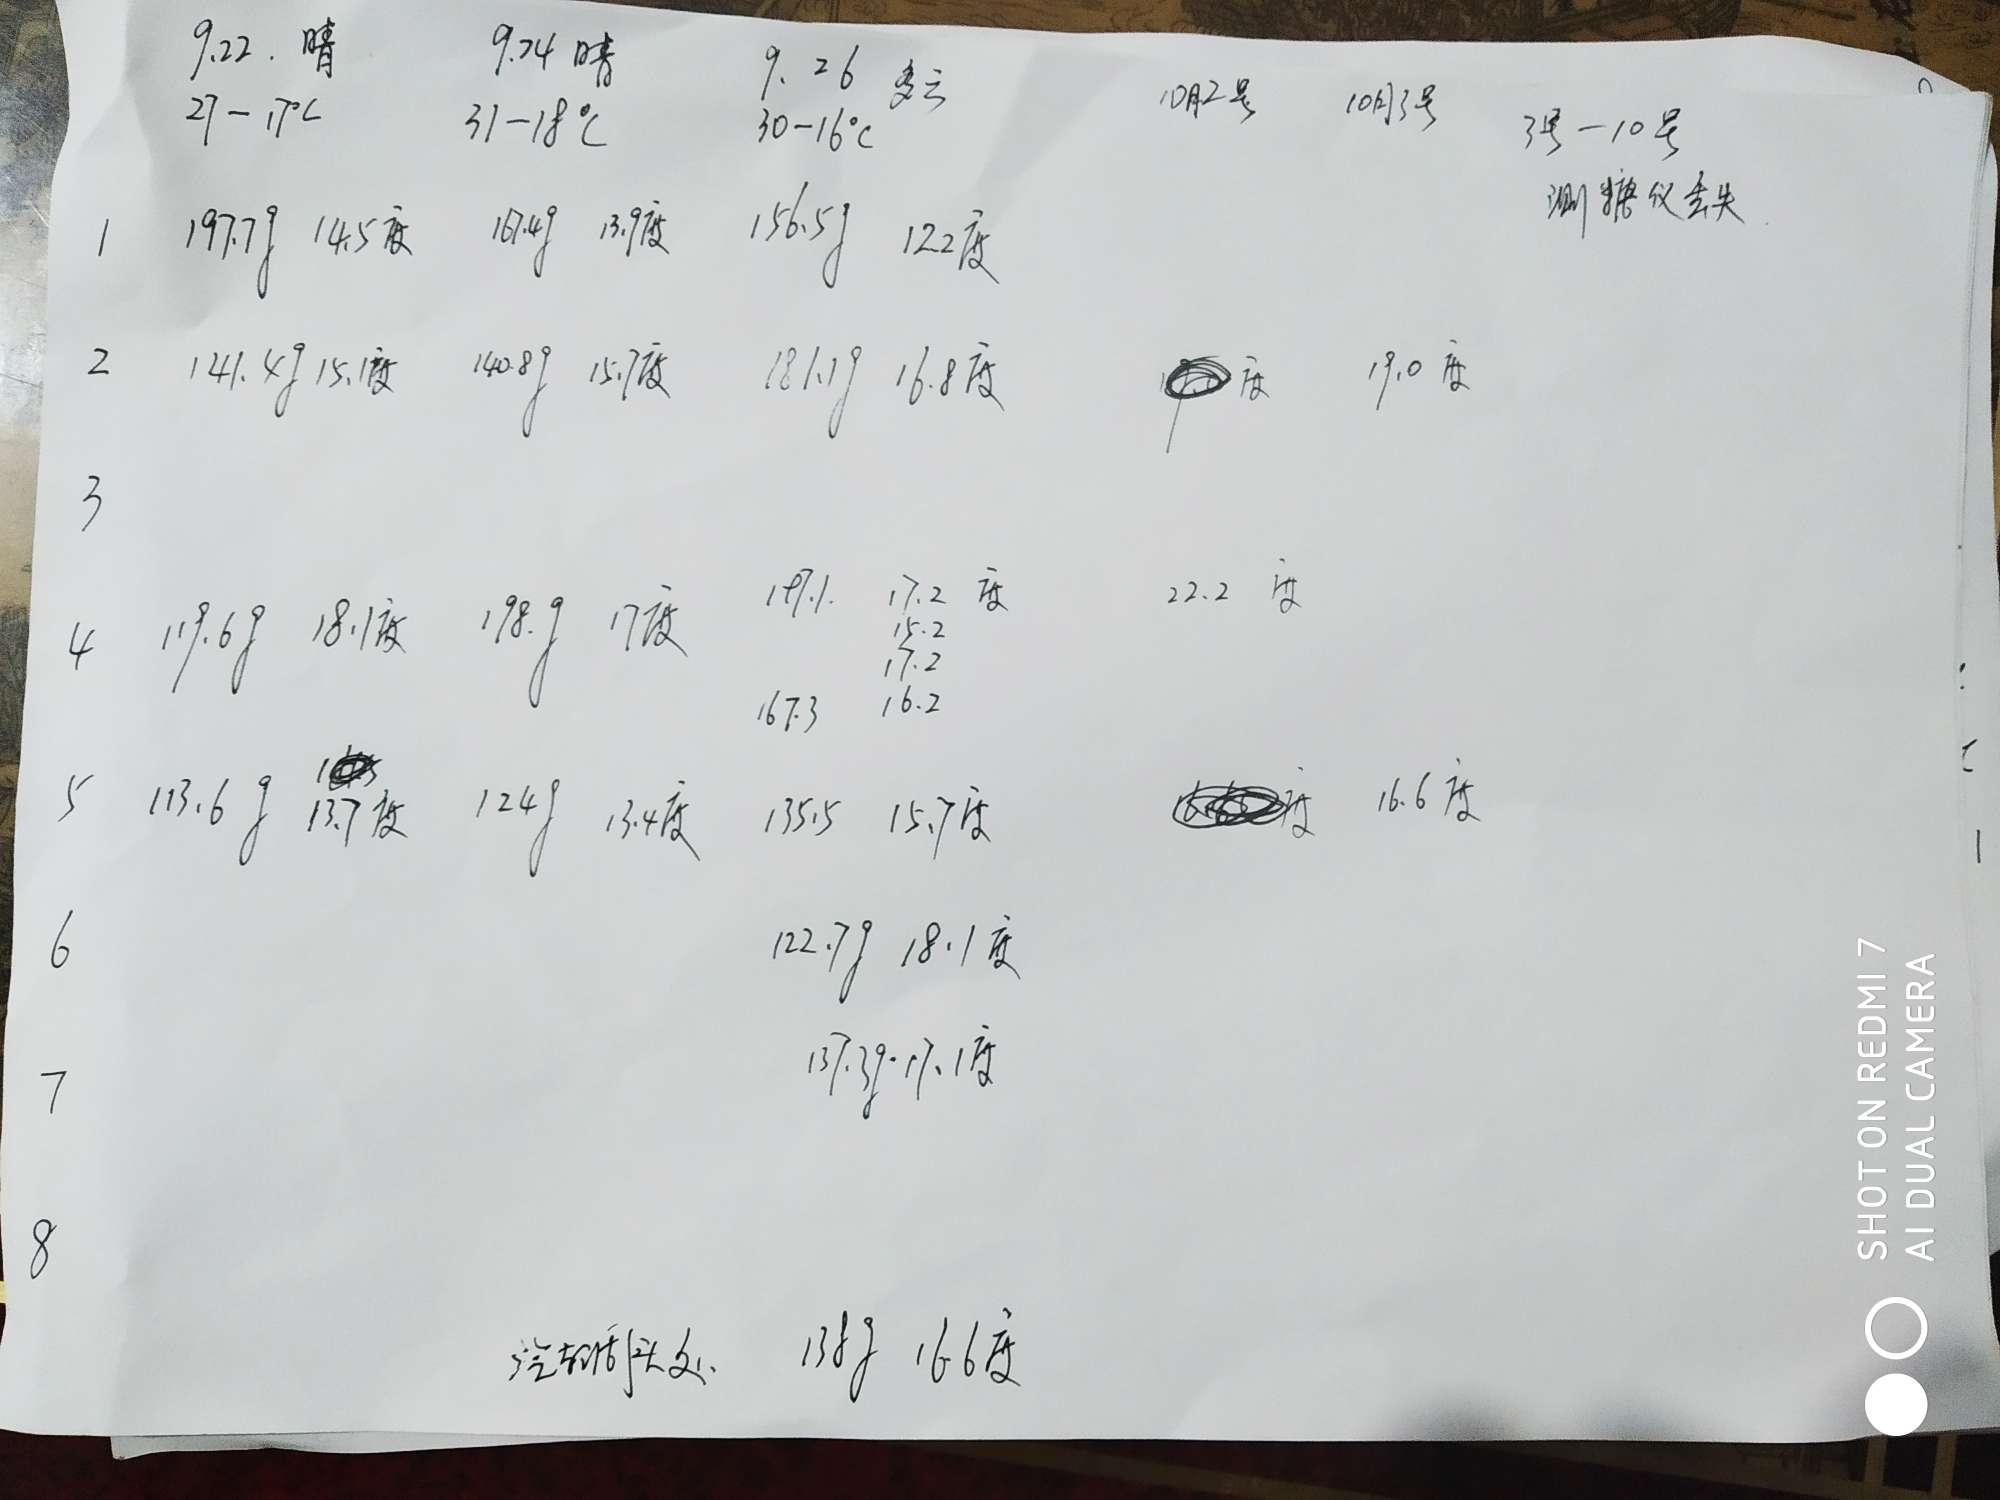 9.22. 晴 9.24 晴 9.26 多云 10月2号 10月3号 3号-10号
27-17°C 31-18°C 30-16°C 测糖仪丢失
1 197.7g 14.5度 167.4g 13.9度 156.5g 12.2度
2 141.4g 15.1度 140.8g 15.7度 181.1g 16.8度 度 19.0度
3
4 119.6g 18.1度 198.g 17度 17.2度 22.2度
15.2
17.2
167.3 16.2
5 113.6g 13.7度 124g 13.4度 135.5 15.7度 度 16.6度
6 122.7g 18.1度
7 137.3g·17.1度
8
138g 16.6度
SHOT ON REDMI 7
AI DUAL CAMERA